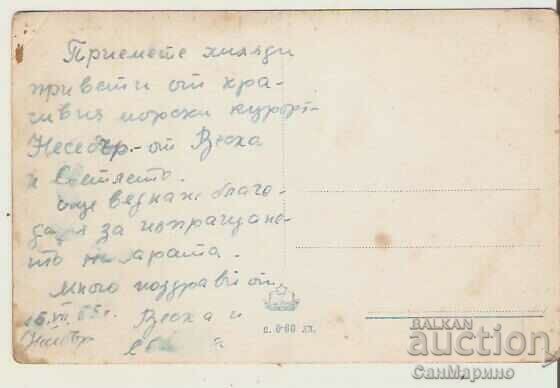 Приемете хиляди
привети от кра-
сивия морски курорт
Несебър - от Веска
и
още веднаж благо-
за изпращане-
то на парата.
Много поздрави от
15.VII.65г. Веска и
Несебър
с. 0·60 лв.
BALKAN
auction
СанМарино